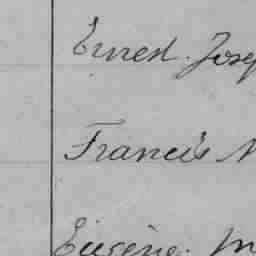 Ernest. Josep
Francis M
Eugene. M